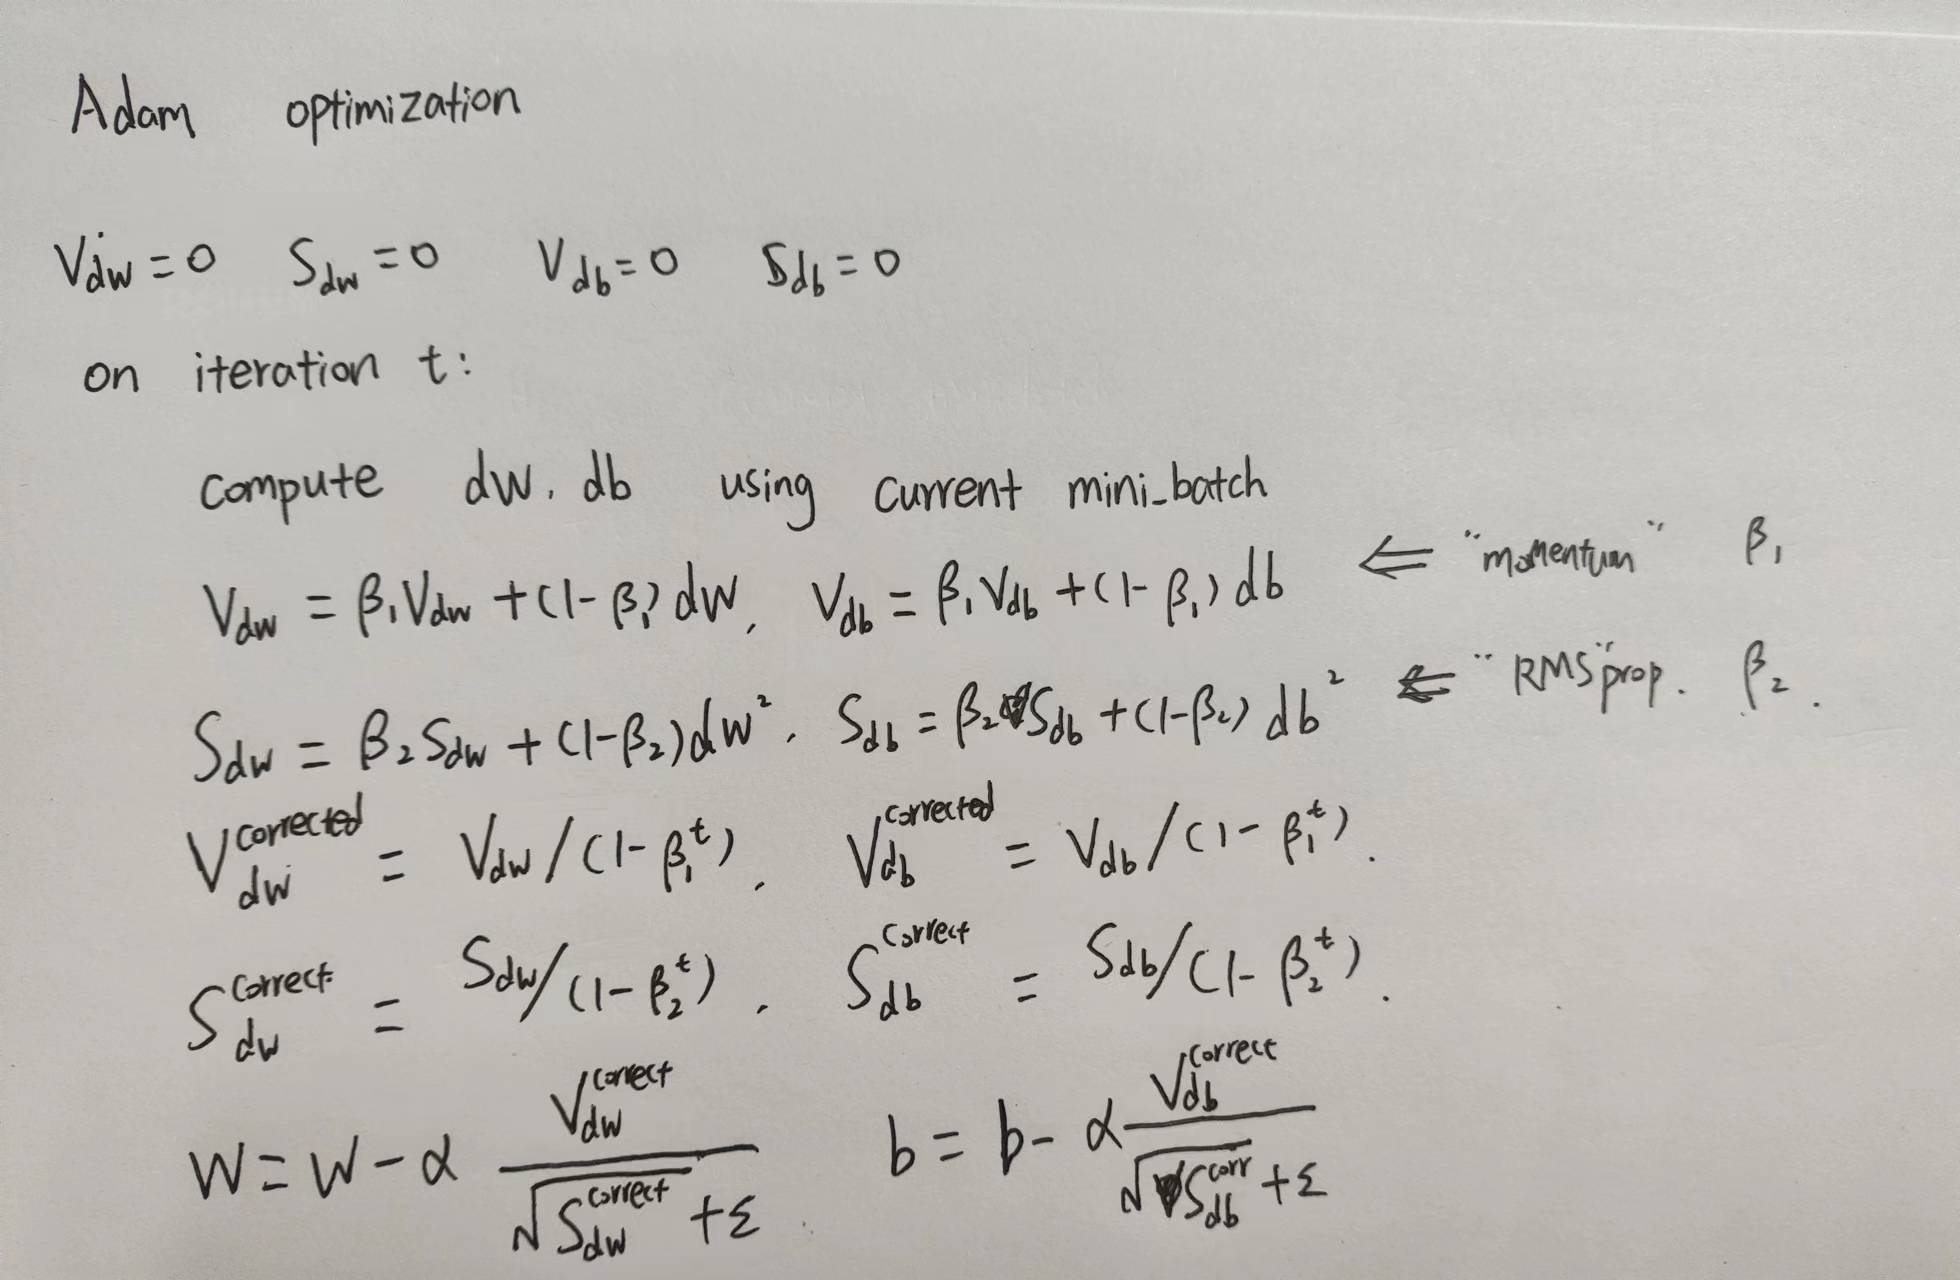 Adam optimization
V_dw = 0 S_dw = 0 V_db = 0 S_db = 0
on iteration t:
compute dw, db using current mini_batch
V_dw = β₁V_dw + (1-β₁)dW, V_db = β₁V_db + (1-β₁)db ⇐ "momentum" β₁
S_dw = β₂S_dw + (1-β₂)dw², S_db = β₂S_db + (1-β₂)db² ⇐ "RMS"prop. β₂.
V_dw^corrected = V_dw/(1-β₁^t), V_db^corrected = V_db/(1-β₁^t).
S_dw^correct = S_dw/(1-β₂^t), S_db^correct = S_db/(1-β₂^t).
W = W - α V_dw^correct / (√S_dw^correct + ε) b = b - α V_db^correct / (√S_db^corr + ε)